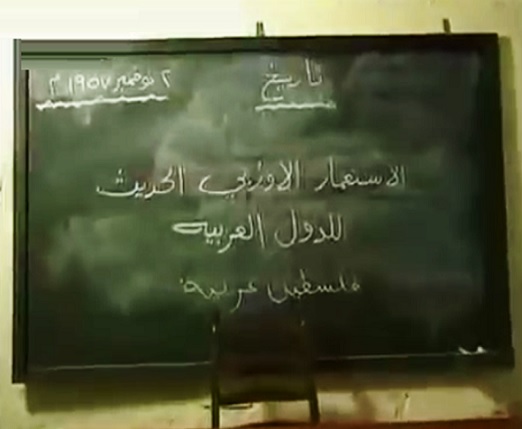 تاريخ
٢ نوفمبر ١٩٥٧ م
الاستعمار الاوربي الحديث
للدول العربيه
فلسطين عربية